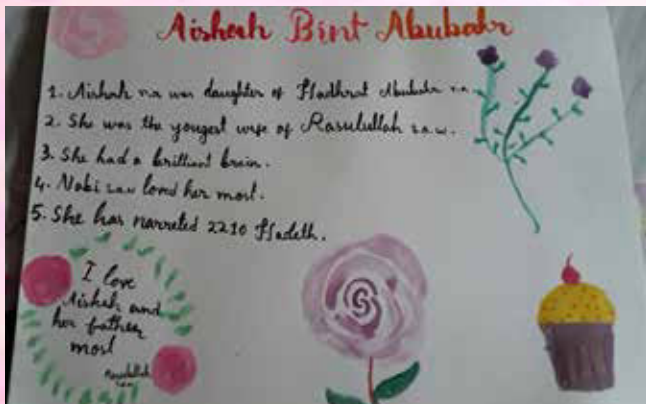 Aishah Bint Abubakr
1. Aishah ra was daughter of Hadhrat Abubakr ra
2. She was the yougest wife of Rasulullah saw.
3. She had a brilliant brain.
4. Nabi saw loved her most.
5. She has narreted 2210 Hadeth.
I love
Aishah and
her father
most
Rasulullah
saw